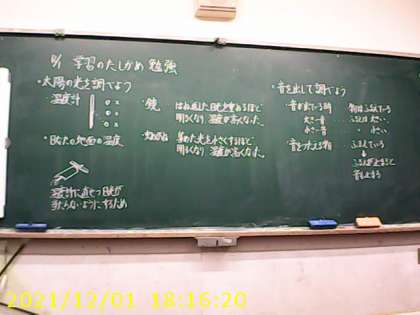 学習のたしかめ 勉強
・太陽の光を調べよう
温度計
・日なたの地面の温度
温度計に直せつ日光が
当たらないようにするため
・鏡
はね返した日光を重ねるほど
明るくなり 温度が高くなった。
・虫めがね
集めた光を小さくするほど
明るくなり 温度が高くなった。
・音を出して調べよう
・音が出ている時 物はふるえている
大きい音
小さい音
・音をつたえる物 ふるえている
2021/12/01 18:16:20